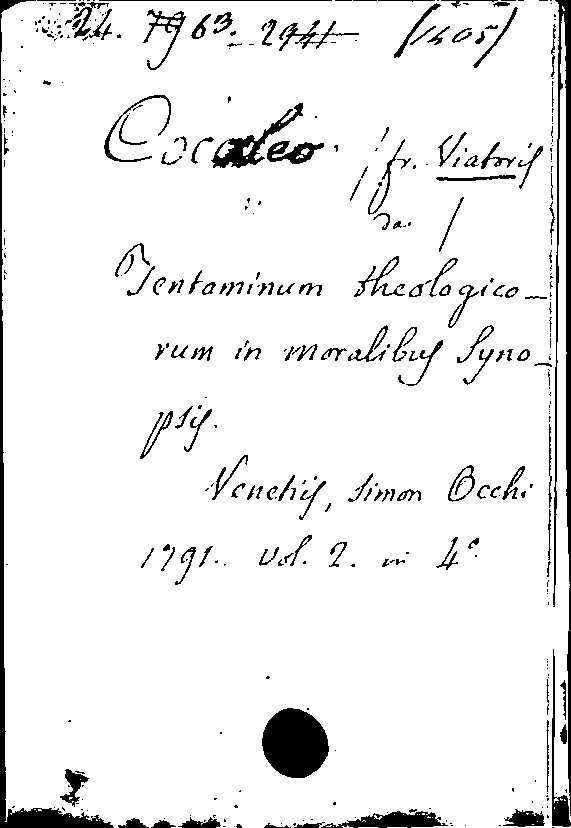 24. 7963. 2941 (1405)
Cocaleo / fr. Viatoris
da /
Tentaminum theologico-
rum in moralibus Syno-
psis.
Venetiis, Simon Occhi
1791. vol. 2. in 4°